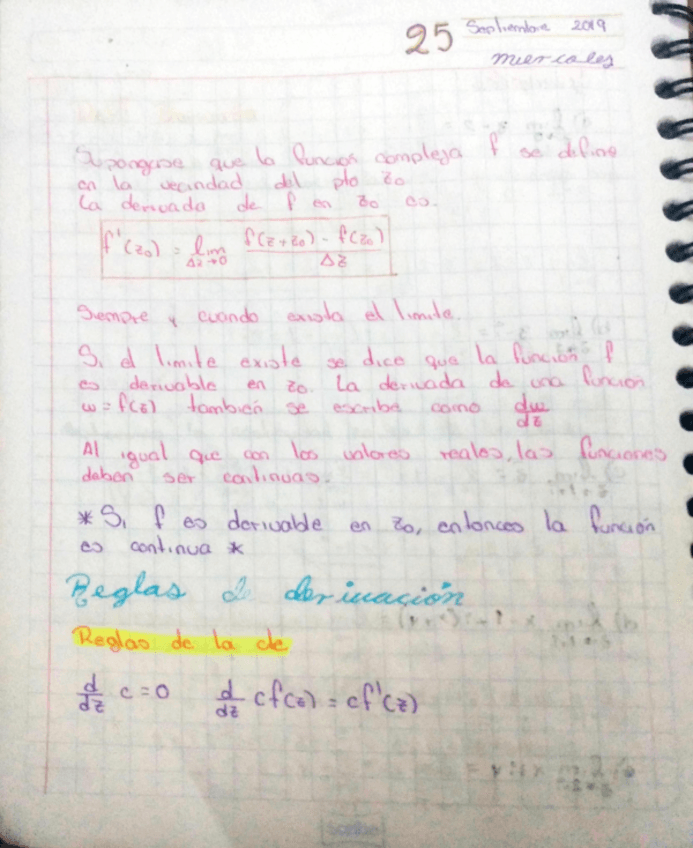 25 Septiembre 2019
miercoles
Supongase que la funcion compleja f se define
en la vecindad del pto z₀
La derivada de f en z₀ es.
f'(z₀) = lim Δz→0 f(z+z₀) - f(z₀) / Δz
Siempre y cuando exista el limite.
Si el limite existe se dice que la función f
es derivable en z₀. La derivada de una función
w = f(z) también se escribe como dw/dz
Al igual que con los valores reales, las funciones
deben ser continuas.
* Si f es derivable en z₀, entonces la función
es continua *
Reglas de derivación
Reglas de la cte
d/dz c = 0 d/dz cf(z) = cf'(z)
scribe